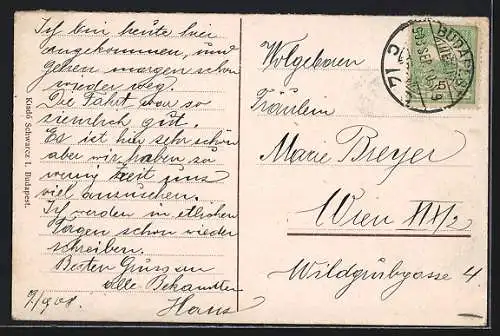 Ich bin heute hier
angekommen, und
gehen morgen schon
wieder weg.
Die Fahrt war so
ziemlich gut.
Es ist hier sehr schön
aber wir haben so
wenig Zeit uns
viel anzusehen.
Ich werden in etlichen
Tagen schon wieder
schreiben.
Besten Gruss an
alle Bekannten
Hans
Kiadó Schwarcz I. Budapest.
Wolgeboren
Fräulein
Marie Breyer
Wien
Wildgrubgasse 4
BUDAPEST